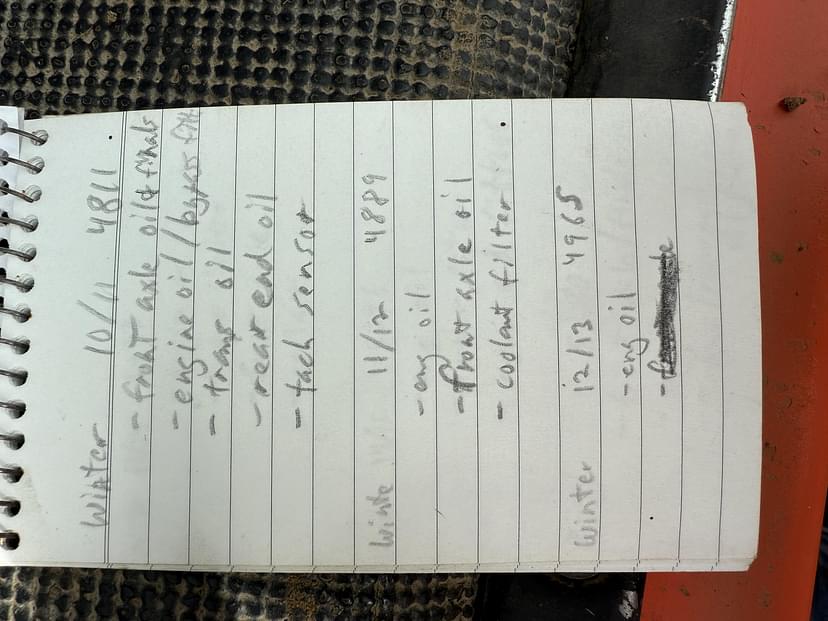 Winter 10/11 4811
- front axle oil & finals
- engine oil/bypass filt
- trans oil
- rear end oil
- tach sensor
Winte 11/12 4889
- eng oil
- front axle oil
- coolant filter
Winter 12/13 4965
- eng oil
-